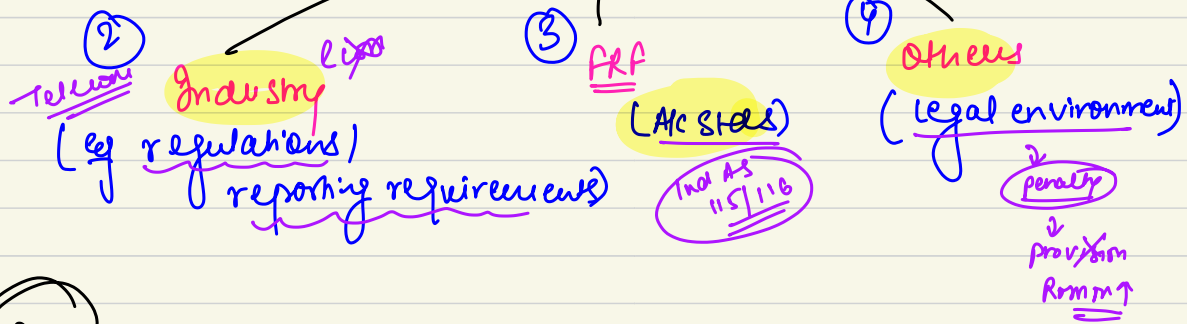 2
Telecom
Industry
(eg regulations)
reporting requirements)
3
FRF
(A/c Stds)
Ind AS
115/116
4
Others
(Legal environment)
penalty
provision
Romm↑